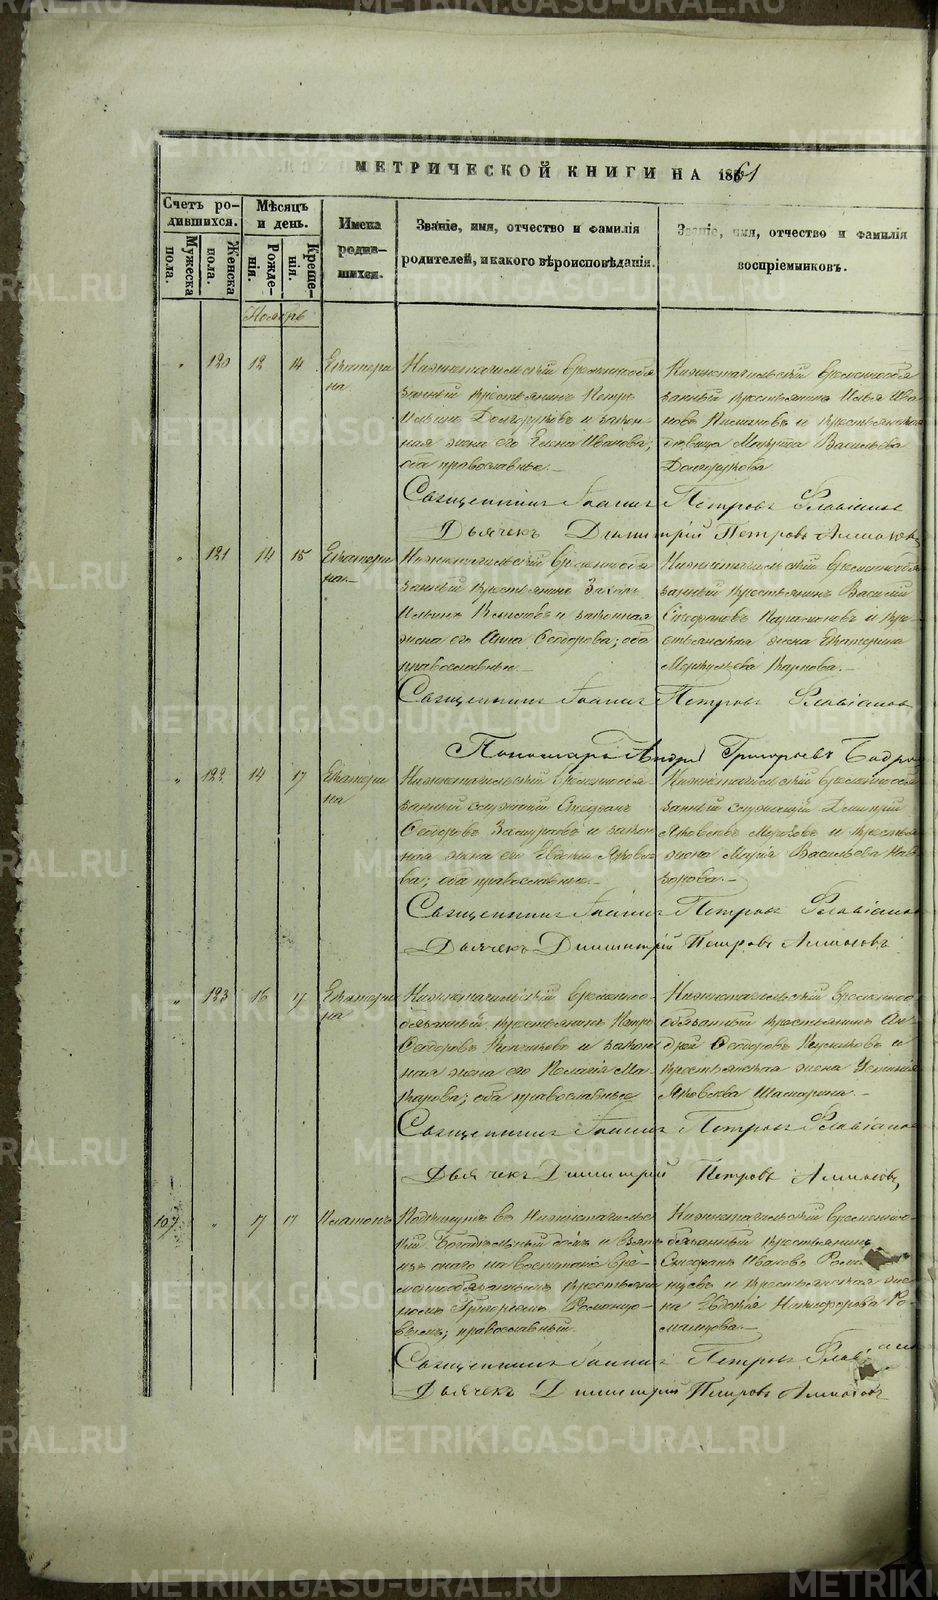 МЕТРИЧЕСКОЙ КНИГИ НА 1861
Счетъ родившихся.
Мужеска пола.
Женска пола.
Мѣсяцъ и день.
Рожденія.
Крещенія.
Имена родившихся.
Званіе, имя, отчество и фамилія родителей, и какого вѣроисповѣданія.
Званіе, имя, отчество и фамилія воспріемниковъ.
Ноябрь
" 120 12 14 Екатерина
Нижнетагильскій временнообя
занный крестьянинъ Петръ
Ильинъ Долгоруковъ и закон-
ная жена его Елена Иванова;
оба православные.
Нижнетагильскій временнообя
занный крестьянинъ Илья Ива
новъ и крестьянская
дѣвица Васильева
Долгорукова
Священникъ Іоаннъ Петровъ Флавіановъ
Дьячекъ Димитрій Петровъ
" 121 14 15 Екатерина
Нижнетагильскій временнообя
занный крестьянинъ
Ильинъ и законная
жена его Анна Ѳеодорова; оба
православные
Нижнетагильскій временнообя
занный крестьянинъ Василій
Стефановъ и кре
стьянская жена Екатерина
Меркульева
Священникъ Іоаннъ Петровъ Флавіановъ
Пономарь Андрей Григорьевъ
" 122 14 17 Екатерина
Нижнетагильскій временнообя
занный служащій Стефанъ
Ѳеодоровъ и закон
ная жена его Евдокія Яковле
ва; оба православные
Нижнетагильскій временнообя
занный служащій Димитрій
Яковлевъ и крестьян
жена Марія Васильева
Священникъ Іоаннъ Петровъ Флавіановъ
Дьячекъ Димитрій Петровъ
" 123 16 17 Екатерина
Нижнетагильскій временно-
обязанный крестьянинъ Петръ
Ѳеодоровъ и закон
ная жена его Пелагія Ма-
карова; оба православные
Нижнетагильскій временно
обязанный крестьянинъ Ан-
дрей Ѳеодоровъ и
крестьянская жена
Яковлева
Священникъ Іоаннъ Петровъ Флавіановъ
Дьячекъ Димитрій Петровъ
107 " 17 17 Платонъ
Подкинутъ въ Нижнетагильс
кій Богадѣльный домъ и взятъ
изъ онаго на воспитаніе вре-
меннообязаннымъ крестьяни
номъ Григоріемъ Романцо-
вымъ; православный
Нижнетагильскій временно-
обязанный крестьянинъ
Стефанъ Ивановъ Роман
цовъ и крестьянская же
на Евдокія Никифорова Ро
манцова
Священникъ Іоаннъ Петровъ Флавіановъ
Дьячекъ Димитрій Петровъ
METRIKI.GASO-URAL.RU